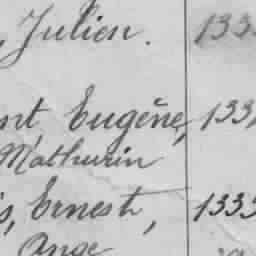 , Julien. 133
nt, Eugène, 133
Mathurin
s, Ernest, 1333
Ange